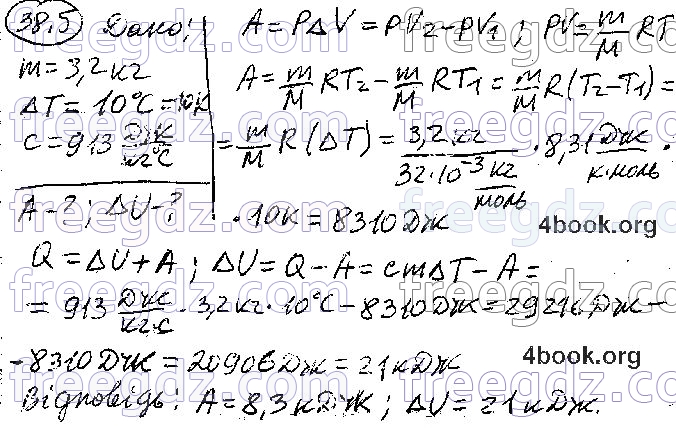 38.5 Дано:
m = 3,2 кг
ΔT = 10°C = 10K
c = 913 Дж/кг°C
A - ?; ΔU - ?
A = PΔV = PV₂ - PV₁; PV = m/M RT
A = m/M RT₂ - m/M RT₁ = m/M R(T₂ - T₁) =
= m/M R(ΔT) = 3,2 кг / 32·10⁻³ кг/моль · 8,31 Дж/К·моль ·
· 10К = 8310 Дж
4book.org
Q = ΔU + A; ΔU = Q - A = cmΔT - A =
= 913 Дж/кг·с · 3,2 кг · 10°C - 8310 Дж = 29216 Дж -
- 8310 Дж = 20906 Дж = 21 кДж
4book.org
Відповідь: A = 8,3 кДж; ΔU = 21 кДж.
freegdz.com
freegdz.com
freegdz.com
freegdz.com
freegdz.com